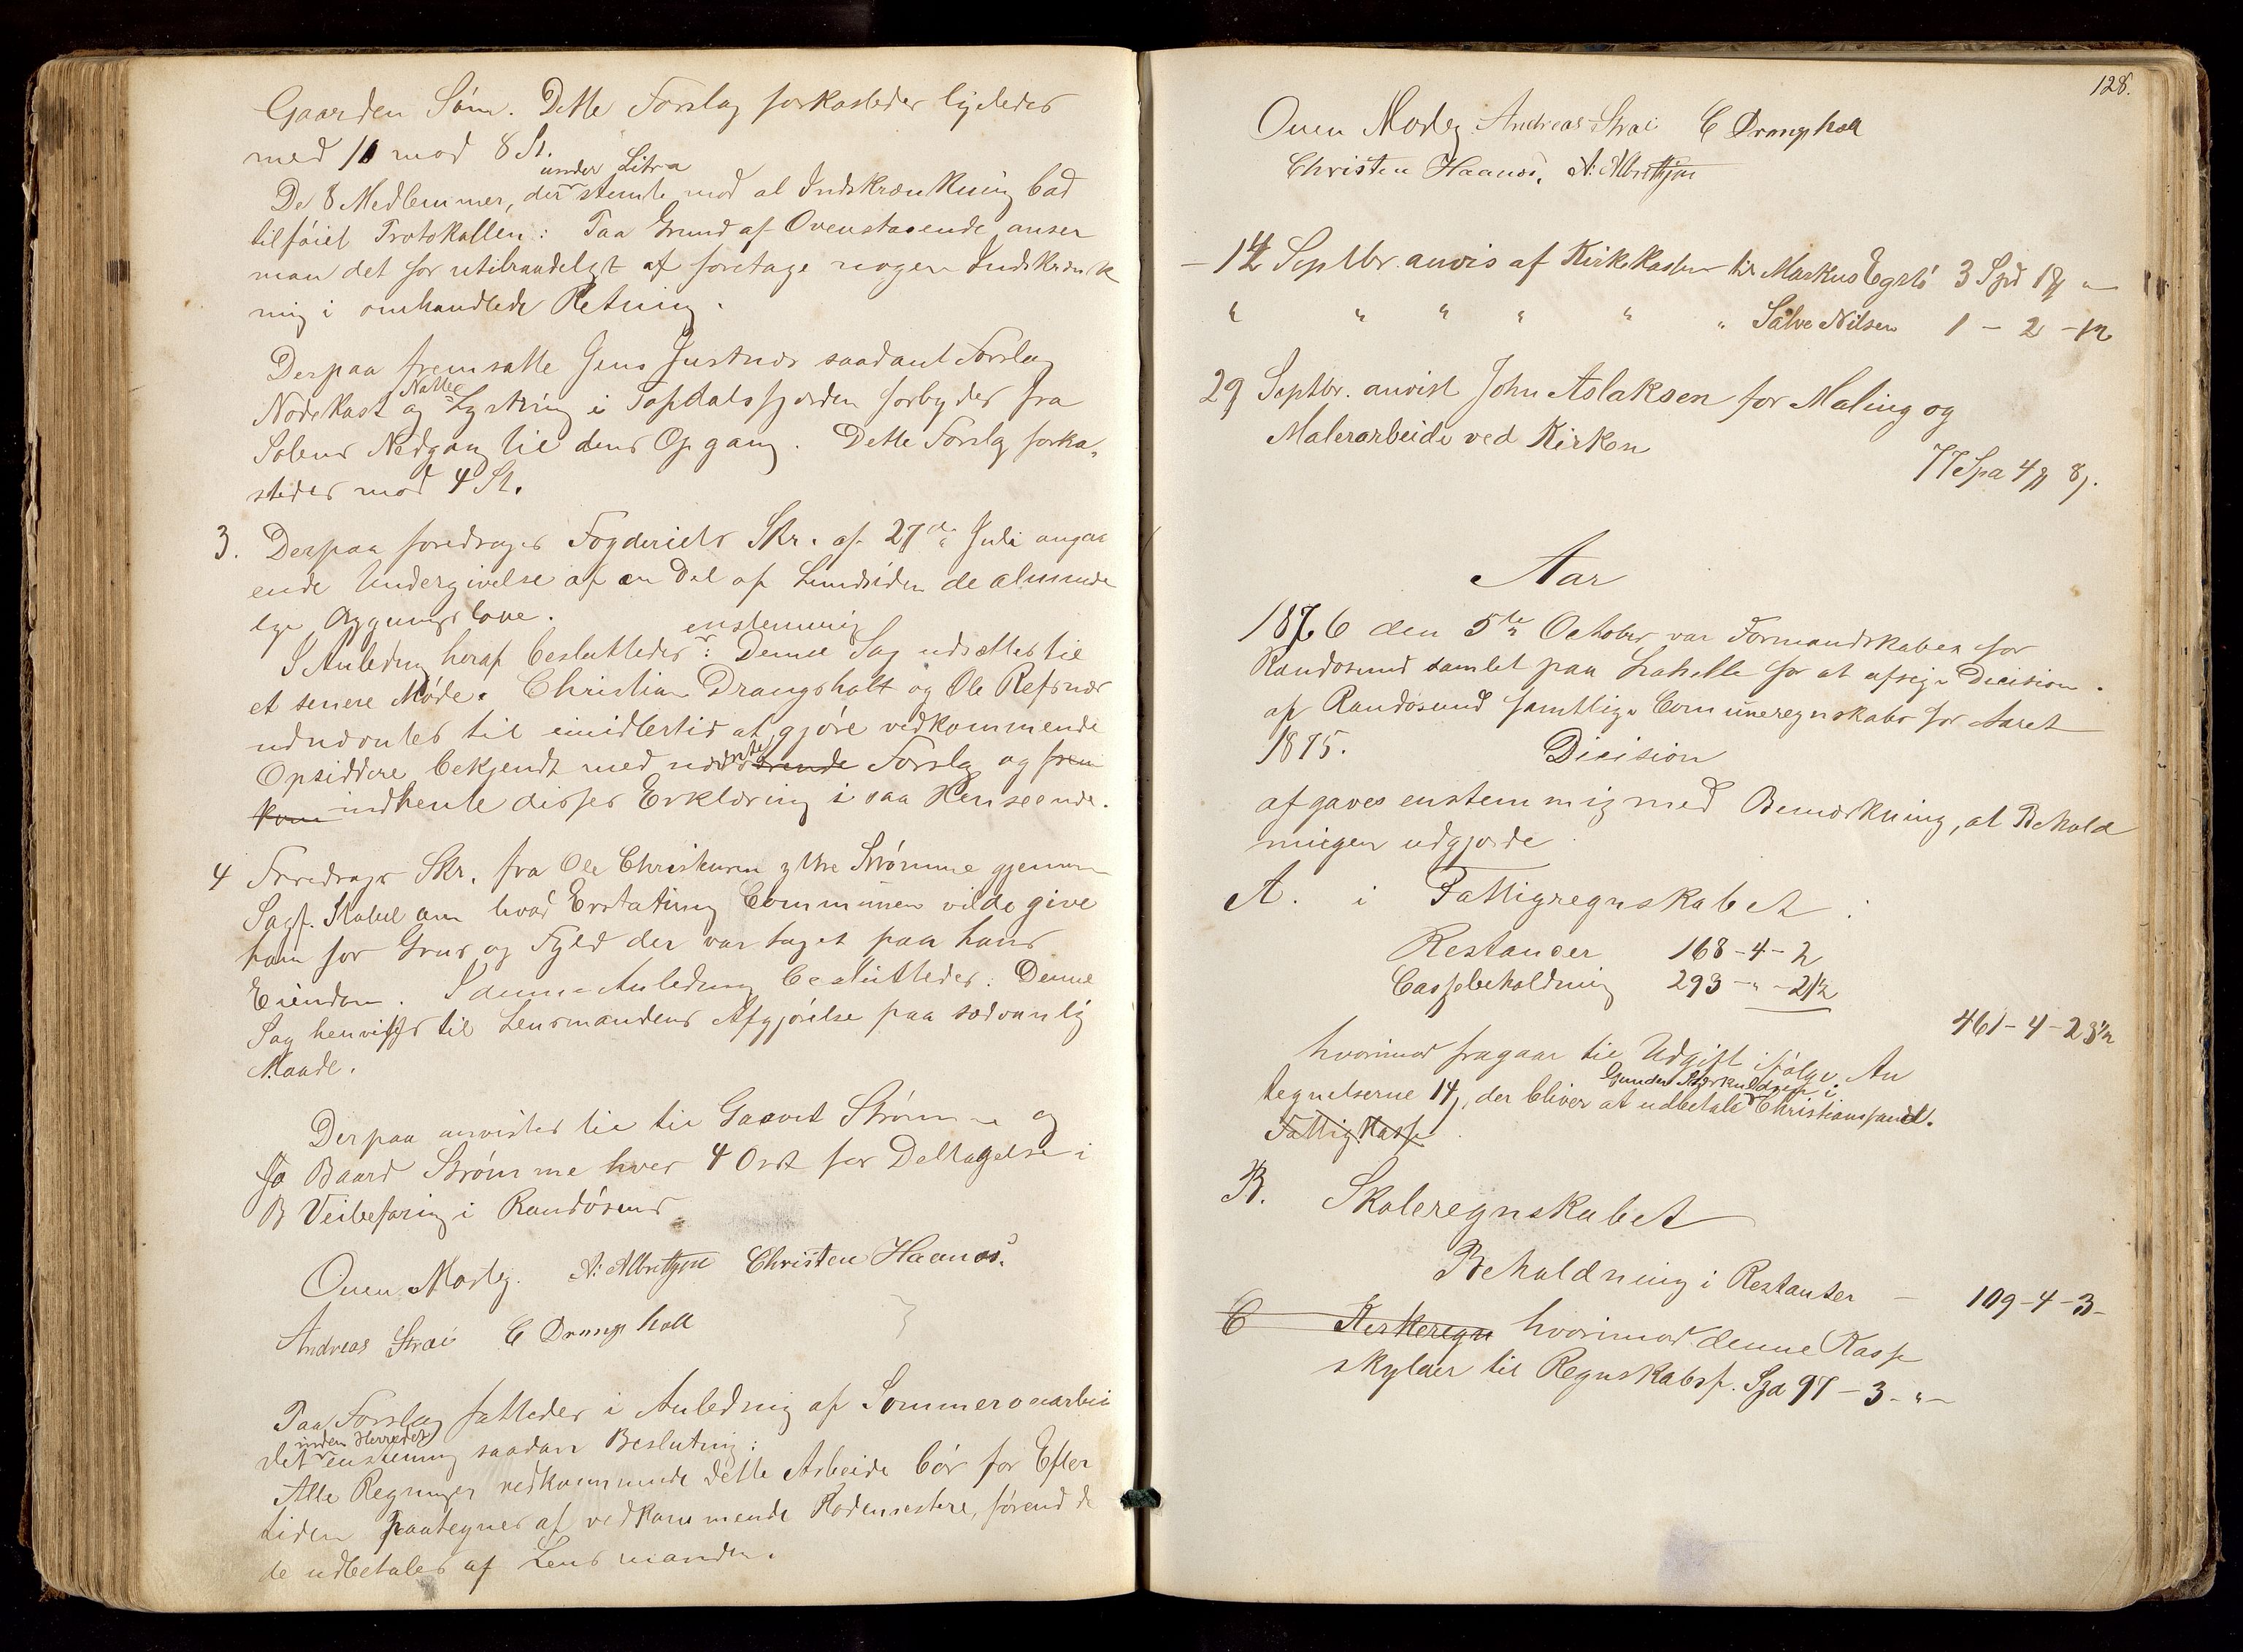 Gaarden Søm. Dette Forslag forkastedes ligeledes
med 10 mod 8 St.
under Litra
De 8 Medlemmer, der stemte mod al Indskrænkning bad
tilføiet Protokollen: Paa Grund af Ovenstaaende anser
man det for utilraadeligt at foretage nogen Indskrænk
ning i omhandlede Retning.
Derpaa fremsatte Jens Justnæs saadant Forslag
Natte
Nodekast og Lystring i Topdalsfjorden forbydes fra
Solens Nedgang til dens Opgang. Dette Forslag forka-
stedes mod 4 St.
3. Derpaa foredroges Fogderiets Skr. af 27de Juli angaa
ende Undergivelse af en Del af Lundsiden de alminde
lige Bygningslove.
enstemmig
I Anledning heraf besluttedes: Denne Sag udsættes til
et senere Møde. Christian Drangsholt og Ole Refsnæs
udnævntes til imidlertid at gjøre vedkommende
Opsiddere bekjendt med nævnte Forslag og frem
kom indhente disses Erklæring i saa Henseende.
4 Foredroges Skr. fra Ole Christensen ytre Strømme gjennem
Sagf. Stabel om hvad Erstatning Communen vilde give
ham for Grus og Fyld der var taget paa hans
Eiendom. I denne Anledning besluttedes: Denne
Sag henvises til Lensmandens Afgjørelse paa sædvanlig
Maade.
Derpaa anvistes til Gaavet Strømme og
Jo Baard Strømme hver 4 Ort for Deltagelse i
B Veibefaring i Randøsund
Ouen Mosby. A: Albretsen Christen Haanæs.
Andreas Strai C Drangsholt
Paa Forslag fattedes i Anledning af Sommerveiarbei
inden Herredet
det enstemmig saadan Beslutning:
Alle Regninger vedkommende dette Arbeide bør for Efter
tiden paategnes af vedkommende Rodemestere, førend de
de udbetales af Lensmanden.
128.
Ouen Mosby Andreas Strai C Drangsholt
Christen Haanæs, A: Albretsen
- 14 Septbr. anvis af Kirkekassen til Markus Egstø 3 Spd 1 "
" " " " " " Salve Nilsen 1 - 2 - 12
29 Septbr. anvist John Aslaksen for Maling og
Malerarbeide ved Kirken
77 Spd 4 8
Aar
1876 den 5te October var Formandskabet for
Randøsund samlet paa Laheile for at afsige Dicision
af Randøsund samtlige Communeregnskabs for Aaret
1875. Dicision
afgaves enstemmig med Bemærkning, at Behold
ningen udgjorde
A. i Fattigregnskabet:
Restancer 168-4-2
Cassebeholdning 293-"-21½
461-4-23½
hvorimod fragaar til Udgift ifølge An
Gunder Størkuldsen i
tegnelserne 14, der bliver at udbetale Christianssand.
Fattigkasse
B. Skoleregnskabet
Beholdning i Restantser - 109-4-3-
C Kirkeregn hvorimod denne Kasse
skylder til Regnskabsf. Spd 97-3-"-